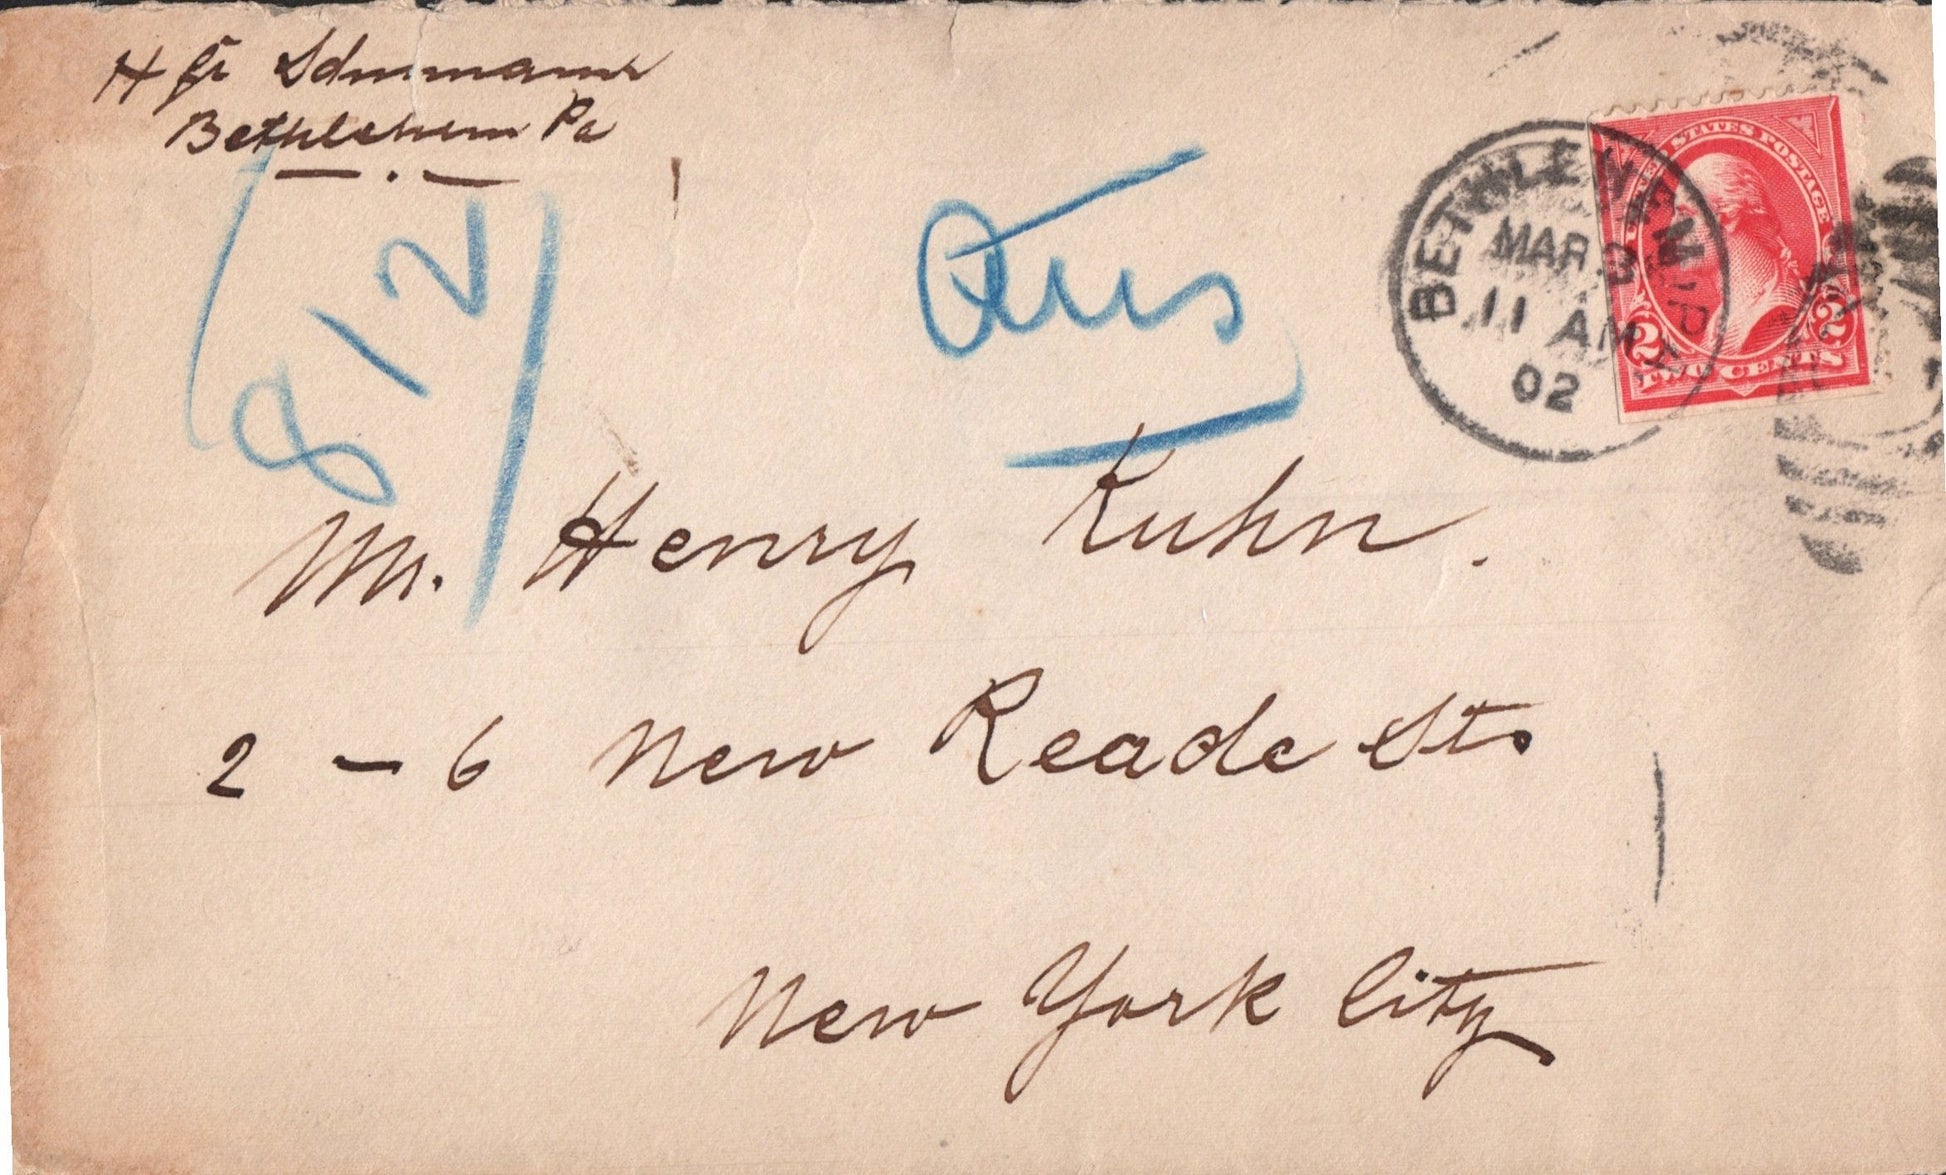 H
Bethlehem Pa
812
BETHLEHEM, PA
MAR. 3
11 AM
02
UNITED STATES POSTAGE
2 2
TWO CENTS
Mr. Henry Kuhn.
2 – 6 New Reade St.
New York City